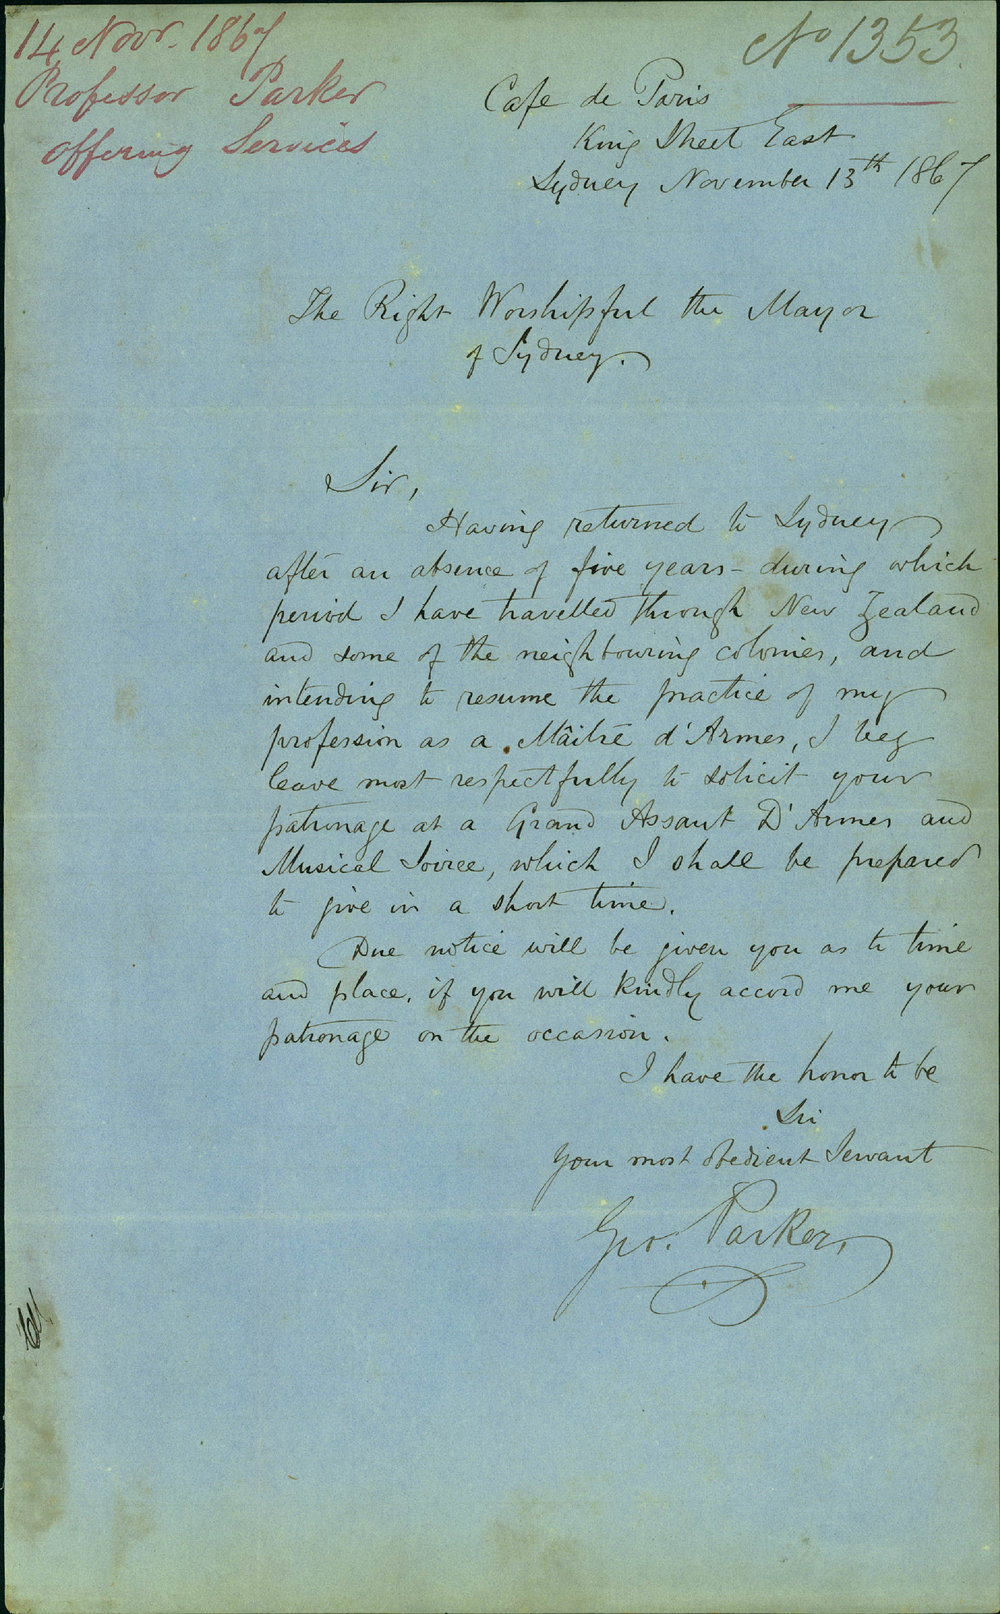 14 Novr. 1867
Professor Parker
offering Services
No 1353
Cafe de Paris
King Street East
Sydney November 13th 1867
The Right Worshipful the Mayor
of Sydney.
Sir,
Having returned to Sydney
after an absence of five years - during which
period I have travelled through New Zealand
and some of the neighbouring colonies, and
intending to resume the practice of my
profession as a Mâitre d'Armes, I beg
leave most respectfully to solicit your
patronage at a Grand Assaut D'Armes and
Musical Soiree, which I shall be prepared
to give in a short time.
Due notice will be given you as to time
and place, if you will kindly accord me your
patronage on the occasion.
I have the honor to be
Sir
Your most obedient Servant
Geo. Parker,